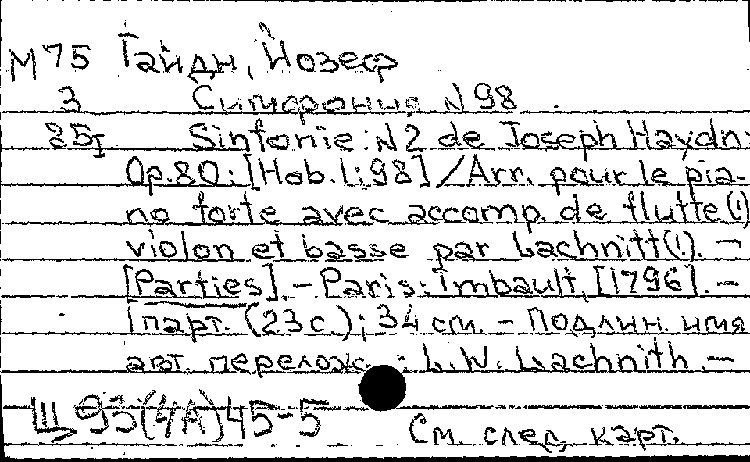 М75 Гайдн, Йозеф
3 Симфония N98
85I Sinfonie: N2 de Joseph Haydn.
Op.80: [Hob.I:98] / Arr. pour le pia-
no forte avec accomp. de flutte(!)
violon et basse par Lachnitt(!). –
[Parties]. – Paris: Imbault, [1796]. –
1 парт. (23 с.); 34 см. – Подлин. имя
авт. перелож.: L.W. Lachnith. –
Щ 93(4А)45-5 См. след. карт.